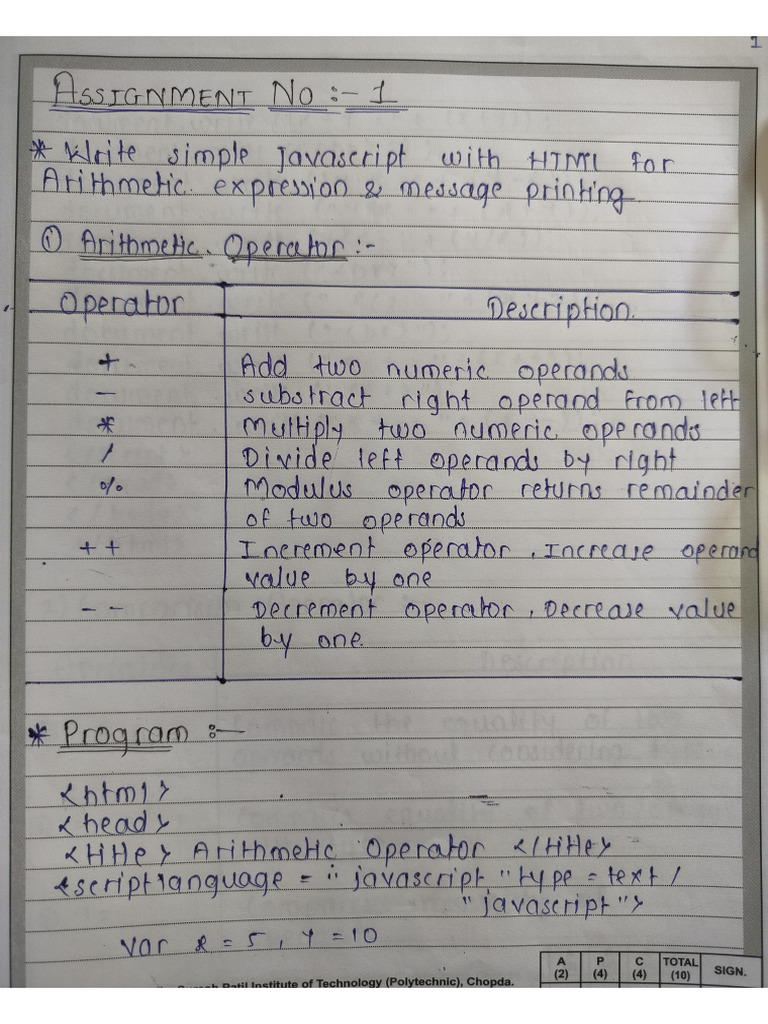 1
ASSIGNMENT NO :- 1
* Write simple Javascript with HTML for
Arithmetic expression & message printing
① Arithmetic Operator :-
Operator Description.
+ Add two numeric operands
- substract right operand from left
* Multiply two numeric operands
/ Divide left operands by right
% Modulus operator returns remainder
of two operands
++ Increment operator, Increase operand
value by one
-- Decrement operator, Decrease value
by one.
* Program :-
<html>
<head>
<title> Arithmetic Operator </title>
<script language = "javascript" type = text /
"javascript">
var x = 5, y = 10
A (2) P (4) C (4) TOTAL (10) SIGN.
Patil Institute of Technology (Polytechnic), Chopda.